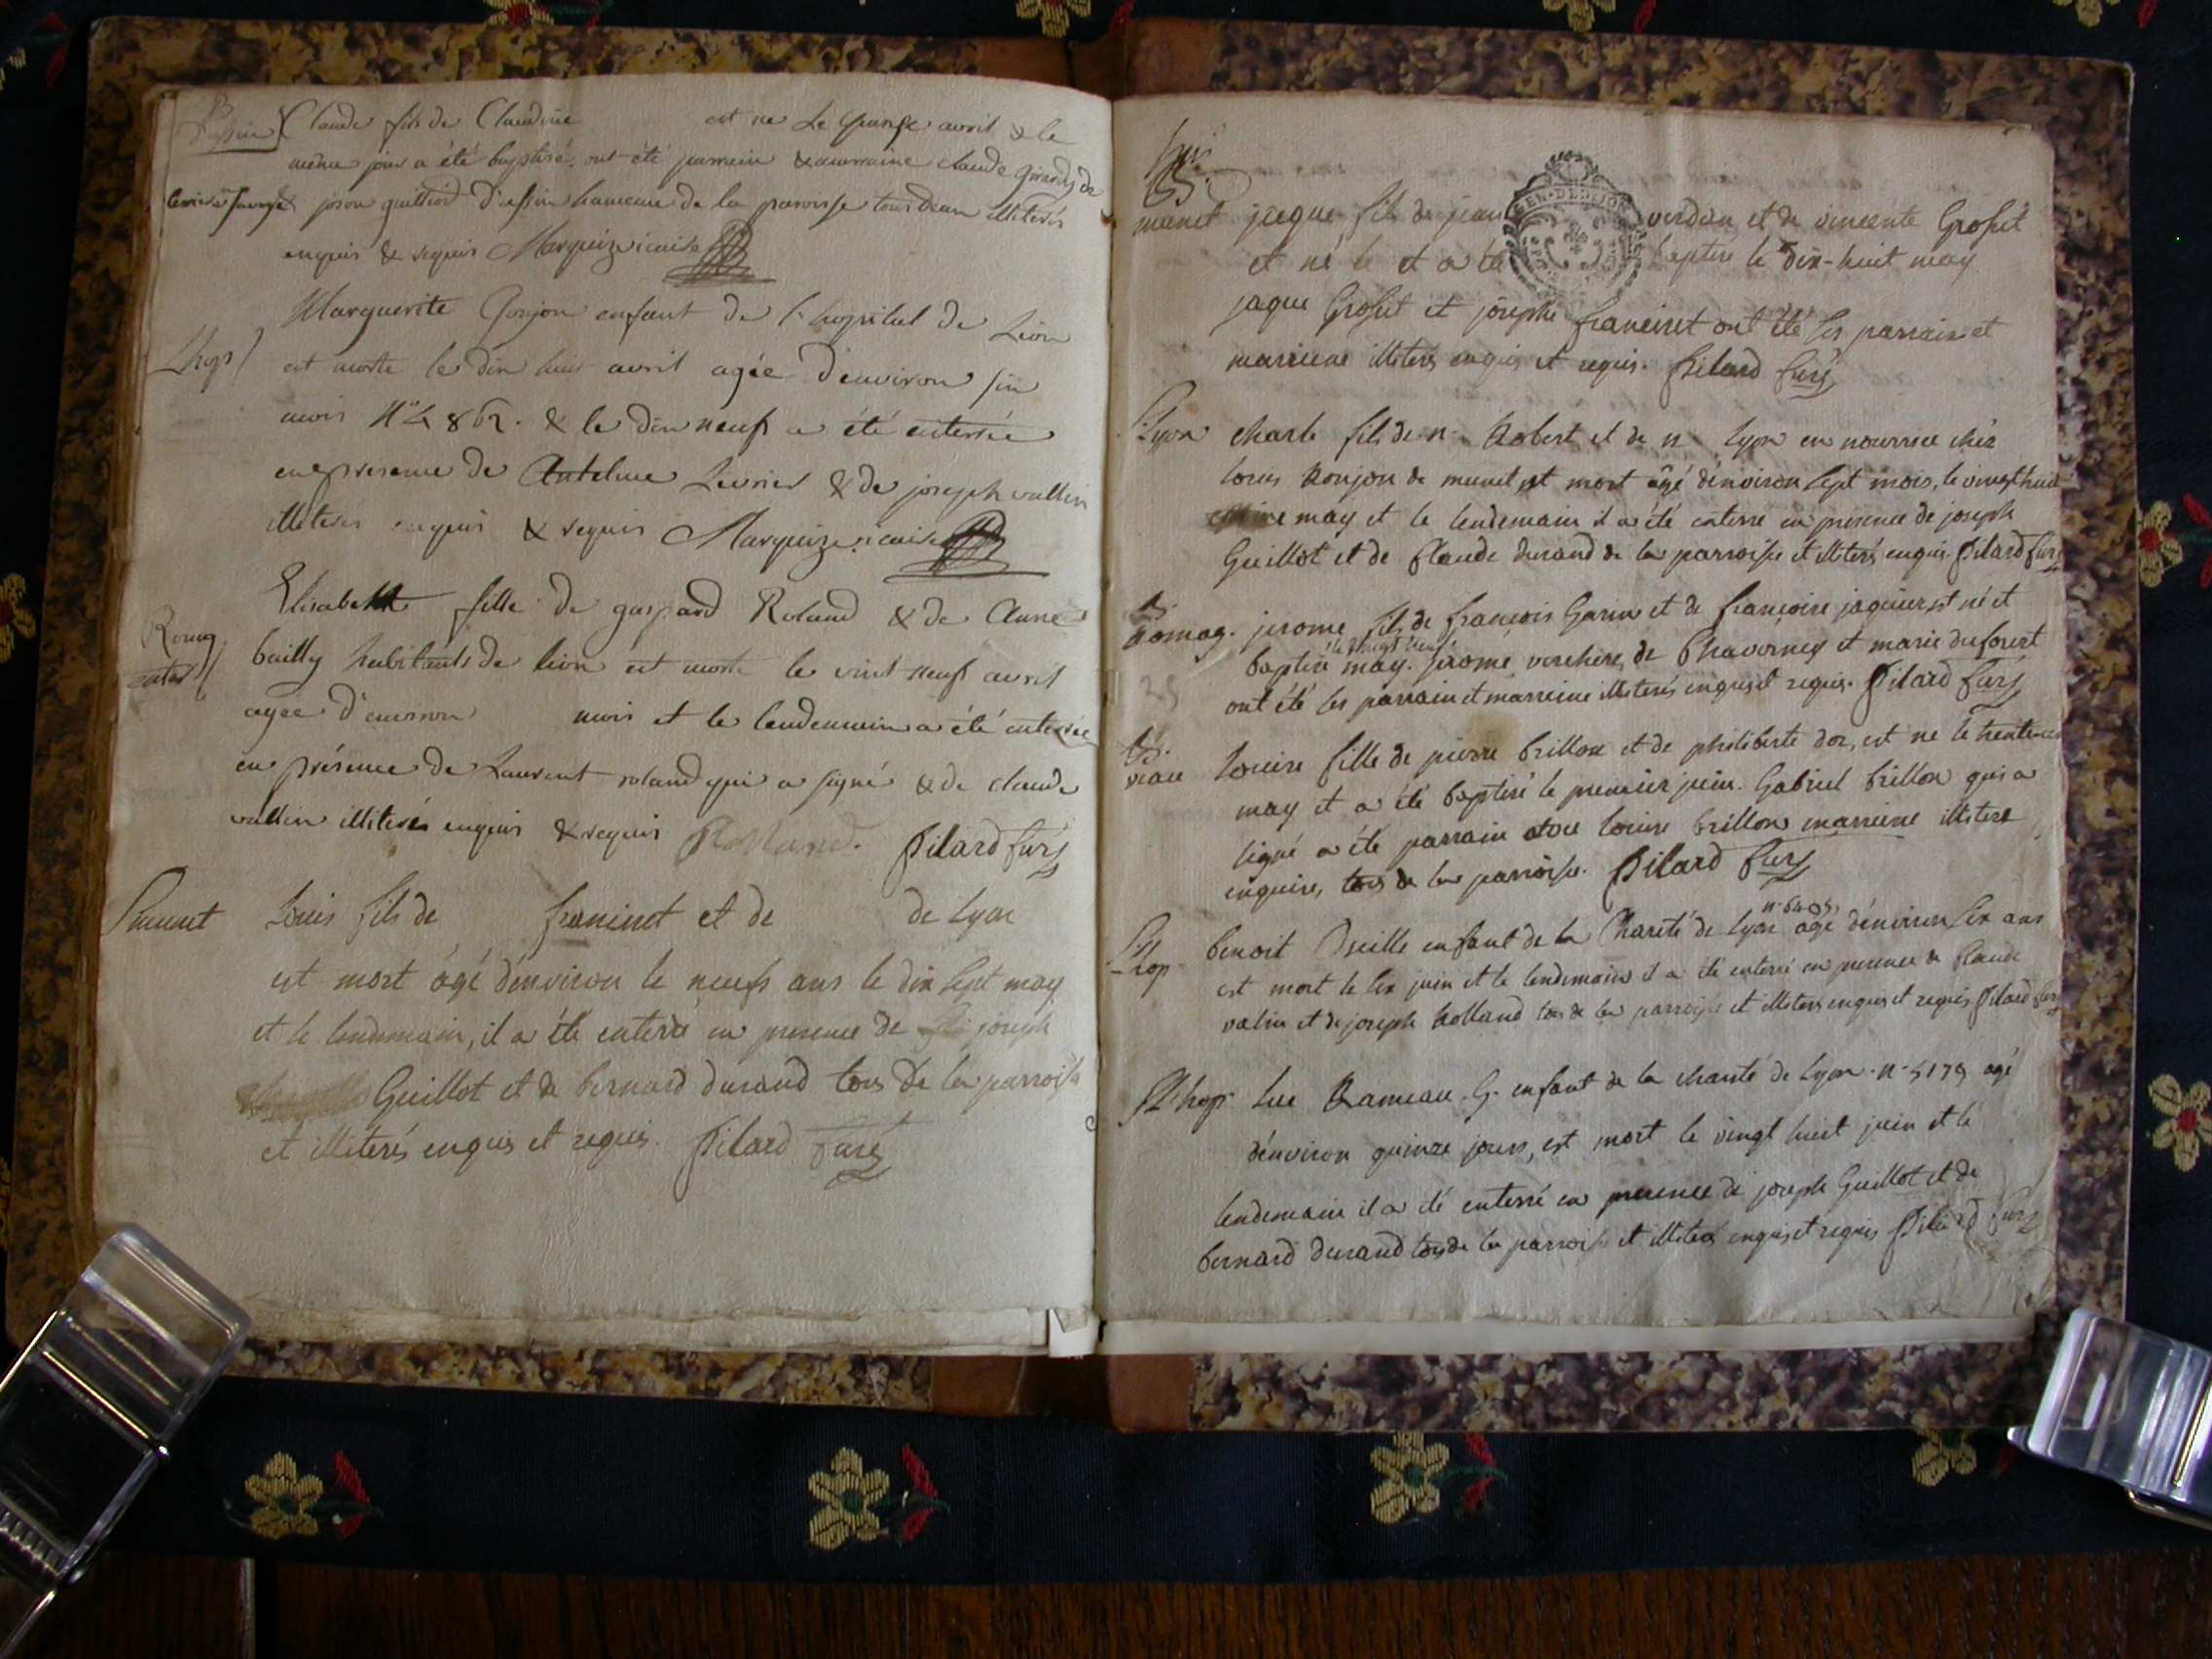 Claude fils de Claudine est ne Le quinze avril & le
même jour a été baptisé, ont été parrain & marraine claude girardy de
guilliod d'assin hameau de la paroisse tous deux illiterés
enquis & requis Marquize vicaire
Lhop / Marguerite Gonjon enfant de l'hopital de Lion
est morte le dix huit avril agée d'environ six
mois N° 4862. & le dix neuf a été enterrée
en presence de Antelme Levrier & de joseph vallin
illiterés enquis & requis Marquize vicaire
Elisabeth fille de gaspard Roland & de Anne
bailly habitants de lion est morte le vint neuf avril
agée d'environ mois et le lendemain a été enterrée
en présence de Laurent roland qui a signé & de claude
vallin illiterés enquis & requis Rolland. Pilard Curé
Lmunet Louis fils de franinet et de de Lyon
est mort âgé d'environ le neufs ans le dix sept may
et le lendemain, il a été enterré en presence de joseph
Guillot et de bernard durand tous de la parroisse
et illiterés enquis et requis. Pilard Curé
munet jacque fils de jean verdan et de vincente Grosset
et né le et a été baptisé le dix-huit may
jaque Grosset et josephe franeinet ont été les parrain et
marrieine illiterés enquis et requis. Pilard Curé
Lyon charle fils de n. Robert et de n Lyon en nourrice chéz
louis Konjon de munet est mort âgé d'environ sept mois, le vingt huit
may et le lendemain il a été enterré en presence de joseph
Guillot et de Claude durand de la parroisse et illiterés enquis Pilard Curé
b. Romag. jerome fils de francois Garin et de francoise jaquier est né et
baptisé le vingt neuf may. jerome verchere, de Chavorney et marie duforest
ont été les parrain et marreine illiterés enquis et requis. Pilard Curé
b. louise fille de pierre brillon et de philiberte dor, est ne le trente
may et a été baptisé le premier juin. Gabriel brillon qui a
signé a été parrain avec louise brillon marrieine illitere
enquise, tous de la parroisse. Pilard Curé
Lhop benoit enfant de la Charité de Lyon n° 6405, agé d'environ six ans
est mort le six juin et le lendemain il a été enterré en presence de Claude
valin et de joseph Rolland tous de la parroisse et illiterés enquis et requis Pilard Curé
Lhop Luc Rameau. G. enfant de la charité de Lyon. n° 5179 agé
d'environ quinze jours, est mort le vingt huit juin et le
lendemain il a été enterré en presence de joseph Guillot et de
bernard durand tous de la parroisse et illiterés enquis et requis Pilard Curé